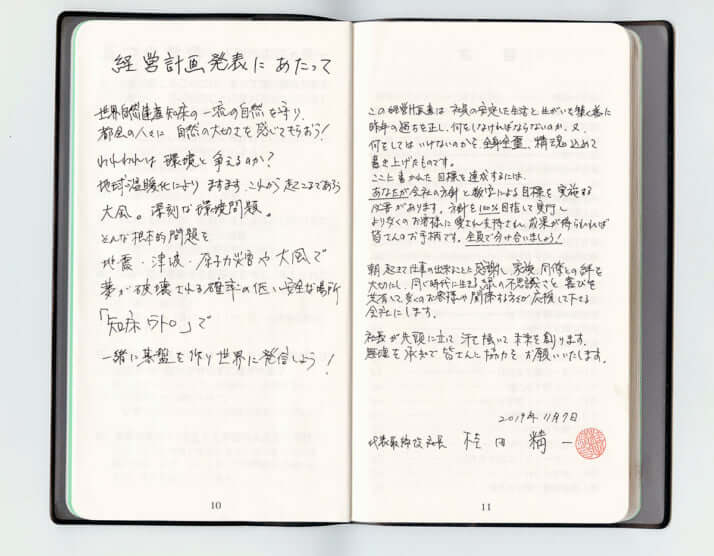 経営計画発表にあたって
世界自然遺産知床の一流の自然を守り、
都会の人々に 自然の大切さを感じてもらおう!
われわれは環境と争えるのか?
地球温暖化により ますます これから起こるであろう
大風。深刻な環境問題。
そんな根本的問題を
地震・津波・原子力災害や大風で
夢が破壊される確率の低い安全な場所
「知床ウトロ」で
一緒に基盤を作り世界に発信しよう!
10
この経営計画書は 社員の安定した生活と生きがいを築く為に
昨年の過ちを正し、何をしなければならないのか、又、
何をしてはいけないのかを 全身全霊、精魂込めて
書き上げたものです。
ここに書かれた目標を達成するには、
あなたが会社の方針と数字による目標を実施する
必要があります。方針を100%目指して実行し
より多くのお客様に愛され支持され、成果が得られれば
皆さんのお手柄です。全員で分け合いましょう!
朝、起きて仕事の出来ることに感謝し、家族、同僚との絆を
大切にし、同じ時代に生きる縁の不思議さと喜びを
共有いて、多くのお客様や関係する方々が応援して下さる
会社にします。
社長が先頭に立って 汗を掻いて未来を創ります。
無理を承知で皆さんに協力をお願いいたします。
2019年11月7日
代表取締役社長 桂田 精一
11